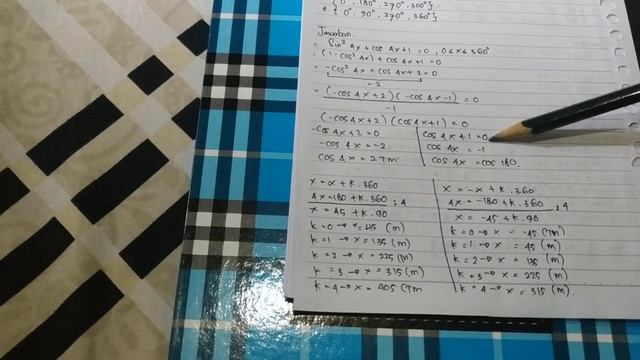 {0°, 180°, 270°, 300°}
e. {0°, 90°, 270°, 360°}
Jawaban.
Sin² 4x + cos 4x + 1 = 0, 0 ≤ x ≤ 360°
= (1 - cos² 4x) + cos 4x + 1 = 0
= -cos² 4x + cos 4x + 2 = 0
-2
= (-cos 4x + 2) (-cos 4x - 1) = 0
-1
(-cos 4x + 2) (cos 4x + 1) = 0
-cos 4x + 2 = 0
-cos 4x = -2
cos 4x = 2 TM
cos 4x + 1 = 0
cos 4x = -1
cos 4x = cos 180.
x = α + k . 360
4x = 180 + k . 360 : 4
x = 45 + k . 90
k = 0 → x = 45 (M)
k = 1 → x = 135 (M)
k = 2 → x = 225 (M)
k = 3 → x = 315 (M)
k = 4 → x = 405 (TM
x = -α + k . 360
4x = -180 + k . 360 : 4
x = -45 + k . 90
k = 0 → x = -45 (TM)
k = 1 → x = 45 (M)
k = 2 → x = 135 (M)
k = 3 → x = 225 (M)
k = 4 → x = 315 (M).